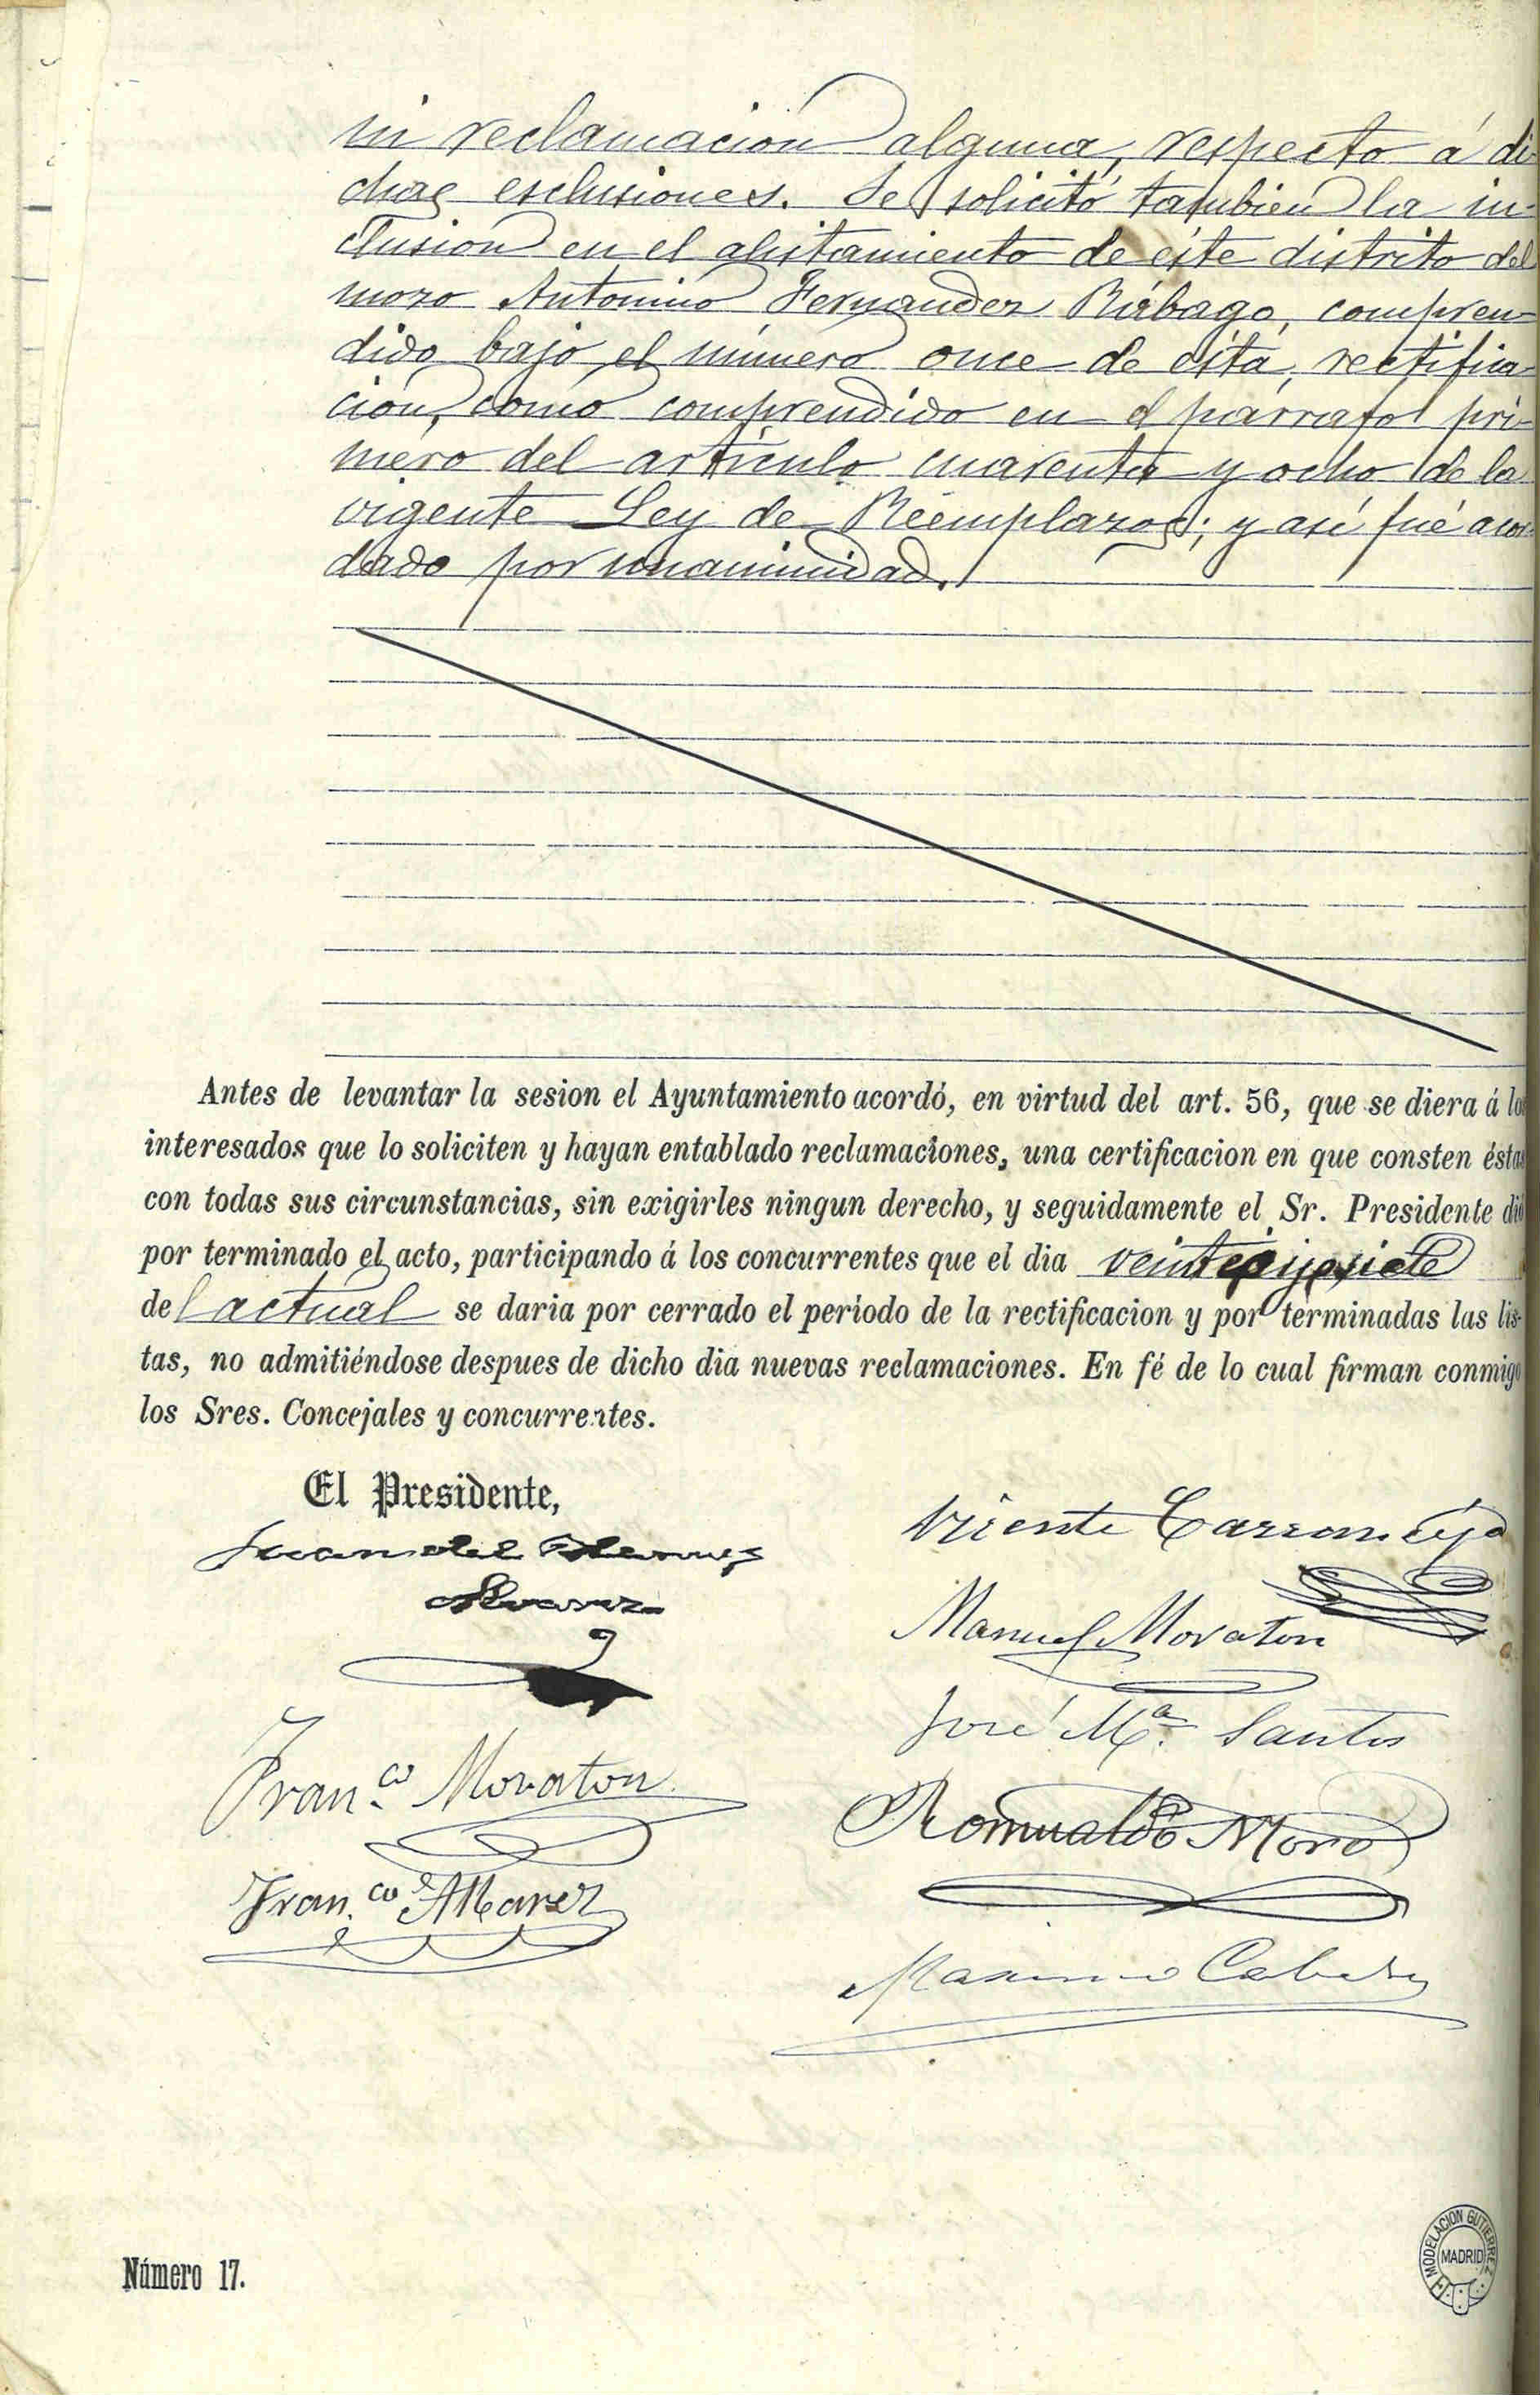 ni reclamación alguna, respecto á di
chas esclusiones. Se solicitó tambien la in-
clusion en el alistamiento de éste distrito del
mozo Antonino Fernandez Rábago, compren-
dido bajo el número once de ésta, rectifica-
cion, como comprendido en el párrafo pri-
mero del artículo cuarenta y ocho de la
vigente Ley de Réemplazos; y así fué acor-
dado por unanimidad.
Antes de levantar la sesion el Ayuntamiento acordó, en virtud del art. 56, que se diera á los
interesados que lo soliciten y hayan entablado reclamaciones, una certificacion en que consten éstas
con todas sus circunstancias, sin exigirles ningun derecho, y seguidamente el Sr. Presidente dió
por terminado el acto, participando á los concurrentes que el dia veinteijsiete
del actual se daria por cerrado el período de la rectificacion y por terminadas las lis-
tas, no admitiéndose despues de dicho dia nuevas reclamaciones. En fé de lo cual firman conmigo
los Sres. Concejales y concurrentes.
El Presidente,
Juan del
Alvarez
Vicente
Manuel Moraton
José Mª. Santos
Franco. Moraton
Romualdo Moro
Fran.co Alvarez
Maximo
Número 17.
MODELACION GUTIERREZ
MADRID